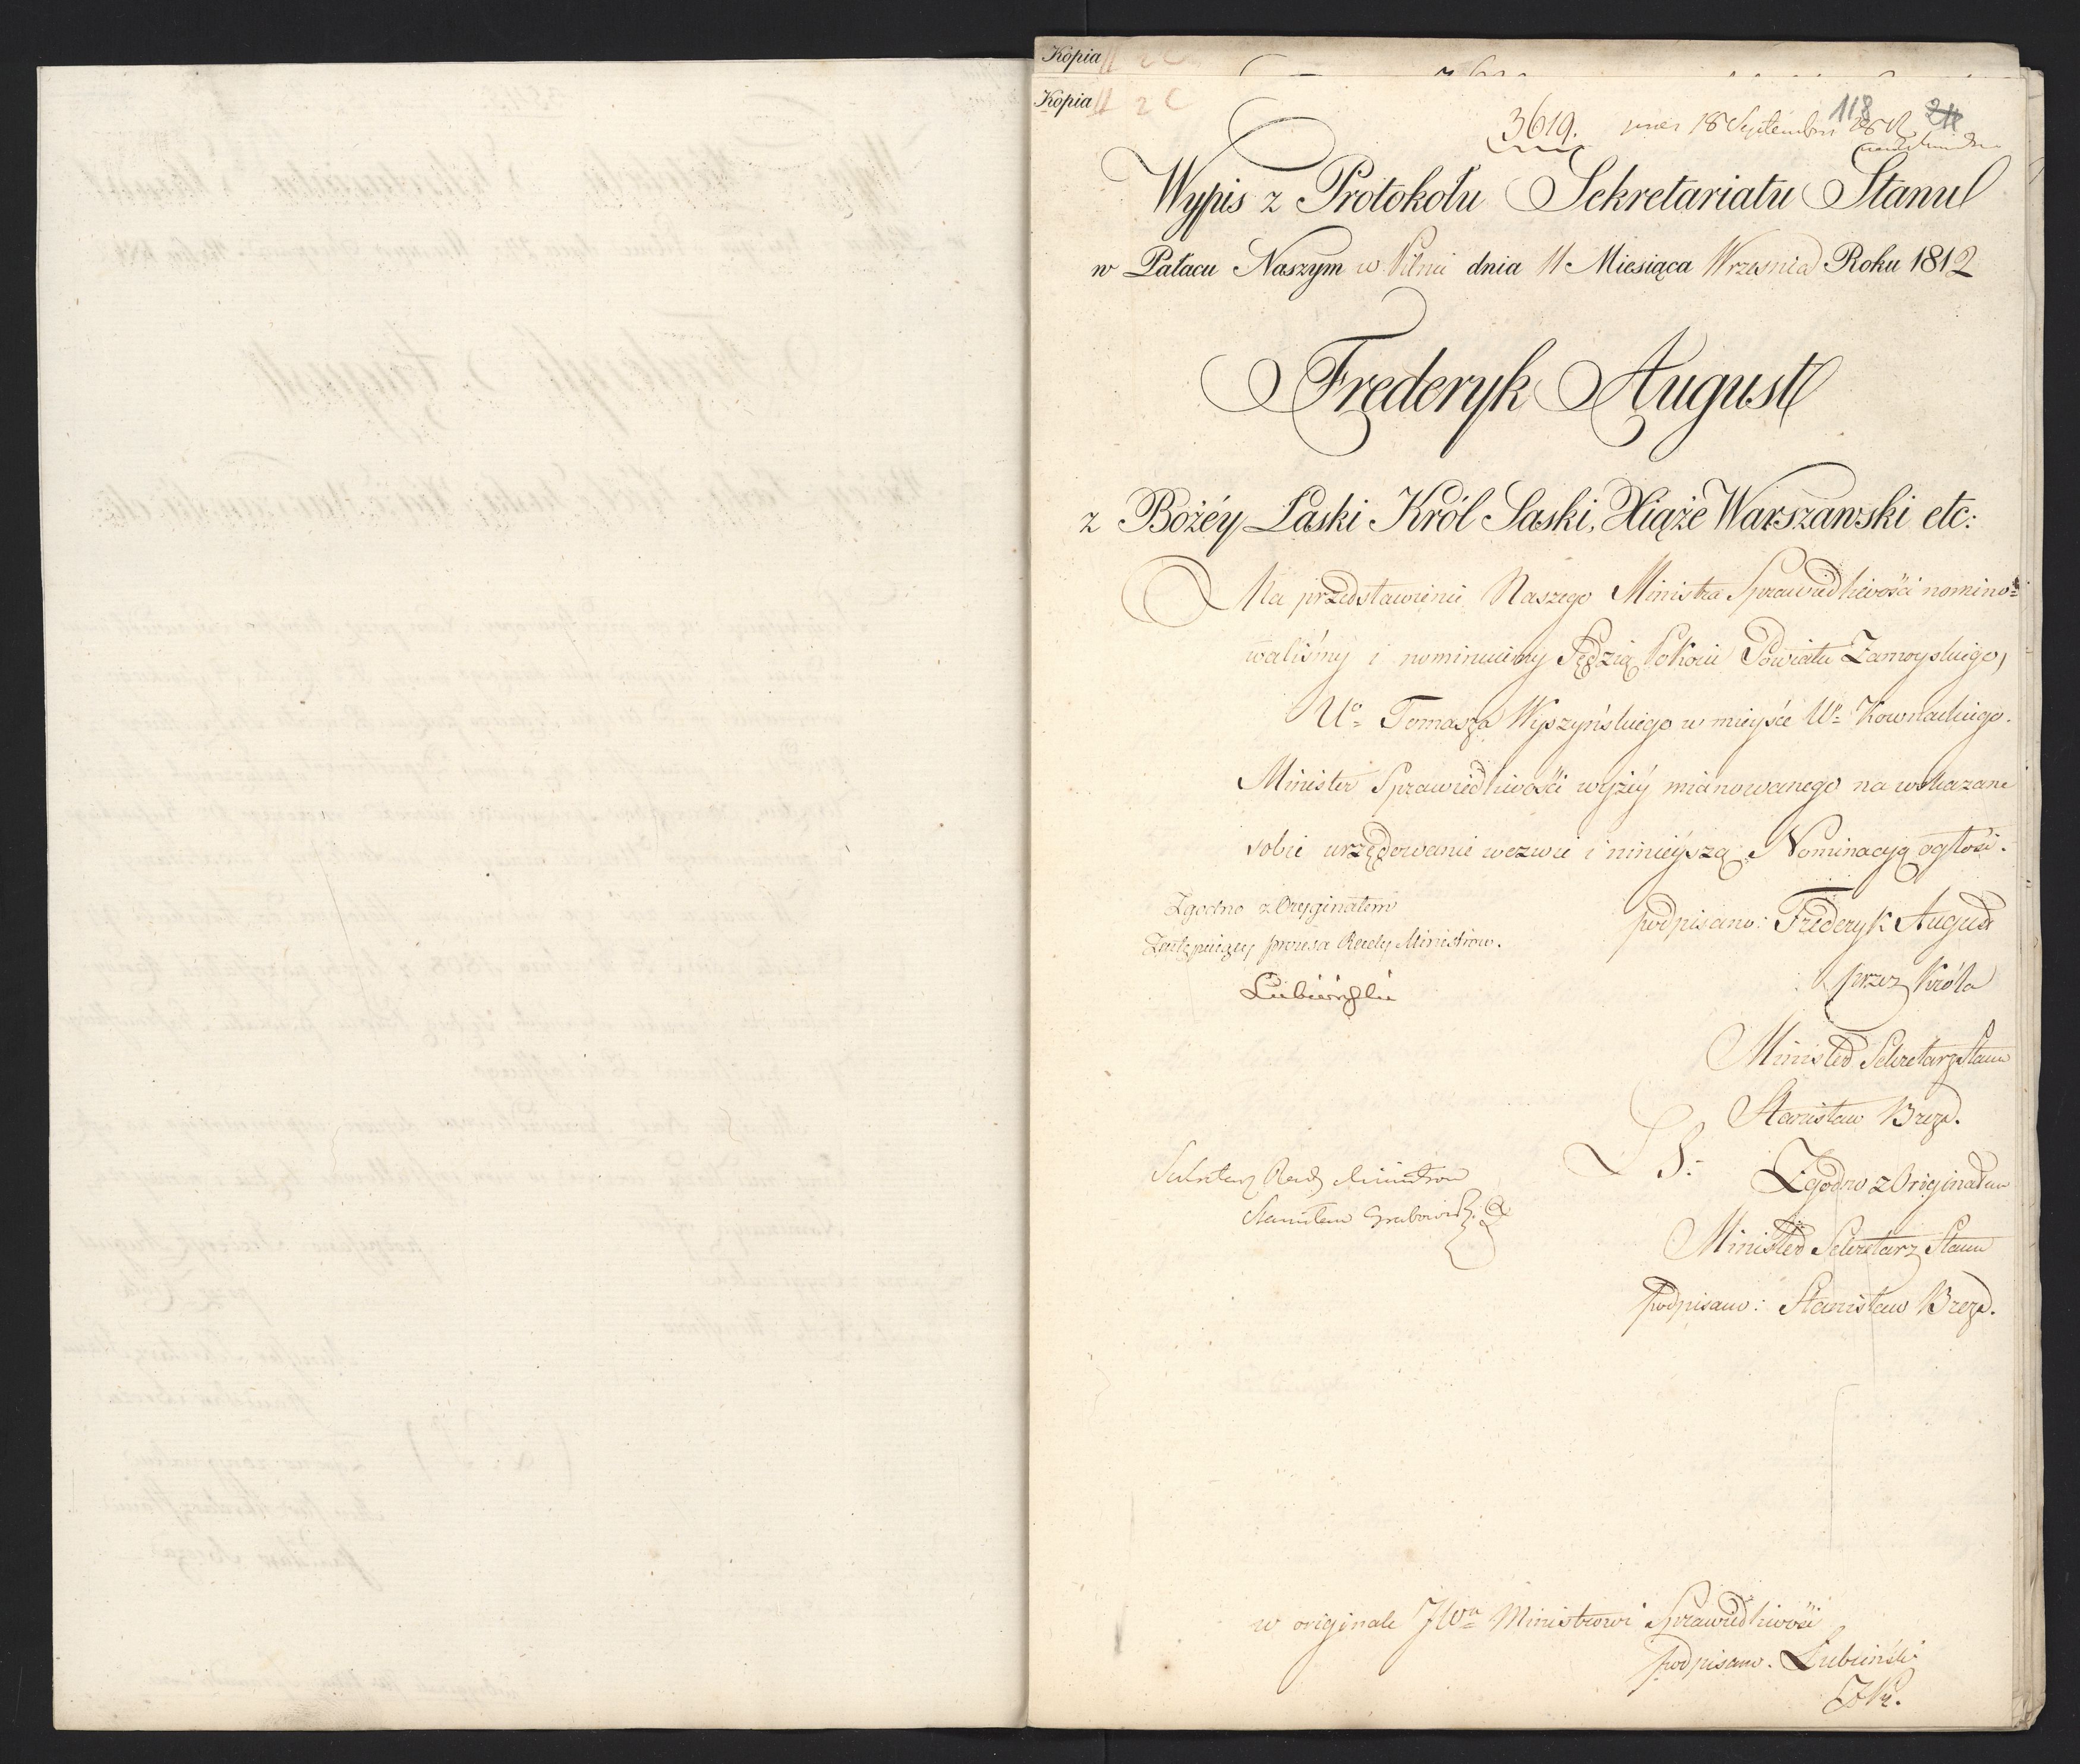 Kopia
Kopia 11 2 C
118 211
3619. 18 Septembra
Wypis z Protokołu Sekretariatu Stanu
w Pałacu Naszym w Pilnic dnia 11 Miesiąca Września Roku 1812
Frederyk August
z Bożéy Łaski Król Saski, Xiąże Warszawski etc:
Na przedstawienie Naszego Ministra Sprawiedliwości nomino=
waliśmy i nominuiemy Sędzią Pokoiu Powiatu Zamoyskiego,
Uo= Tomasza Wyszyńskiego w mieysce Uo= Kownackiego.
Minister Sprawiedliwości wyżéy mianowanego na wskazane
sobie urzędowanie wezwie i ninieyszą Nominacyą ogłosi.
Zgodno z Oryginałem
Zastępuiący prezesa Rady Ministrow.
Łubieński
podpisano: Frederyk August
przez Króla
Minister Sekretarz Stanu
Stanisław Breza.
L S.
Zgodno z Originałem
Sekretarz Rady Ministrow
Stanisław Grabowski
Minister Sekretarz Stanu
podpisano: Stanisław Breza.
w originale JWu= Ministrowi Sprawiedliwości
podpisano. Łubieński